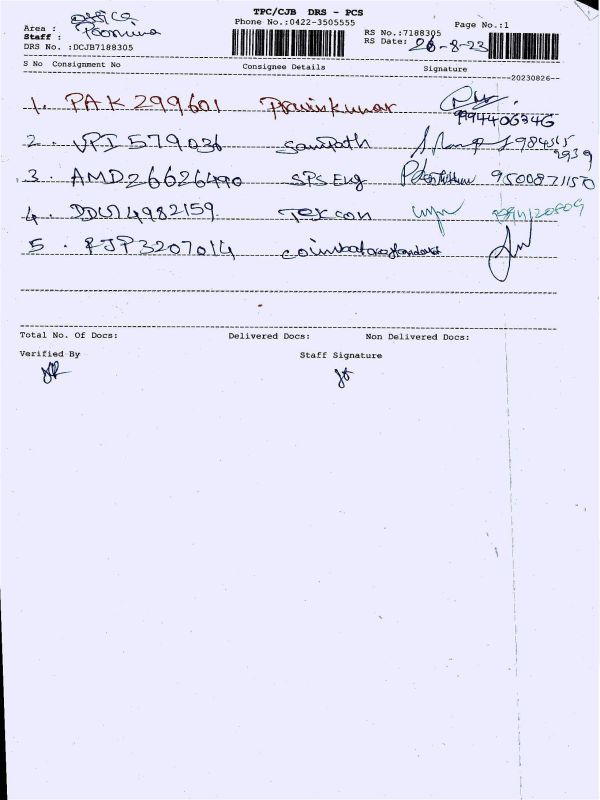 TPC/CJB DRS - PCS
Phone No.:0422-3505555 Page No.:1
Area :
Staff : Poornima
RS No.:7188305
DRS No. :DCJB7188305
RS Date: 26-8-23
S No Consignment No Consignee Details Signature
20230826
1. PAK 299601 Pravinkumar 9944066346
2. VPI 579036 Sampath
3. AMD26626490 SPS Eng 9500871150
4. 4982159 Texcon
5. RJP3207014 Coimbatore
Total No. Of Docs: Delivered Docs: Non Delivered Docs:
Verified By Staff Signature